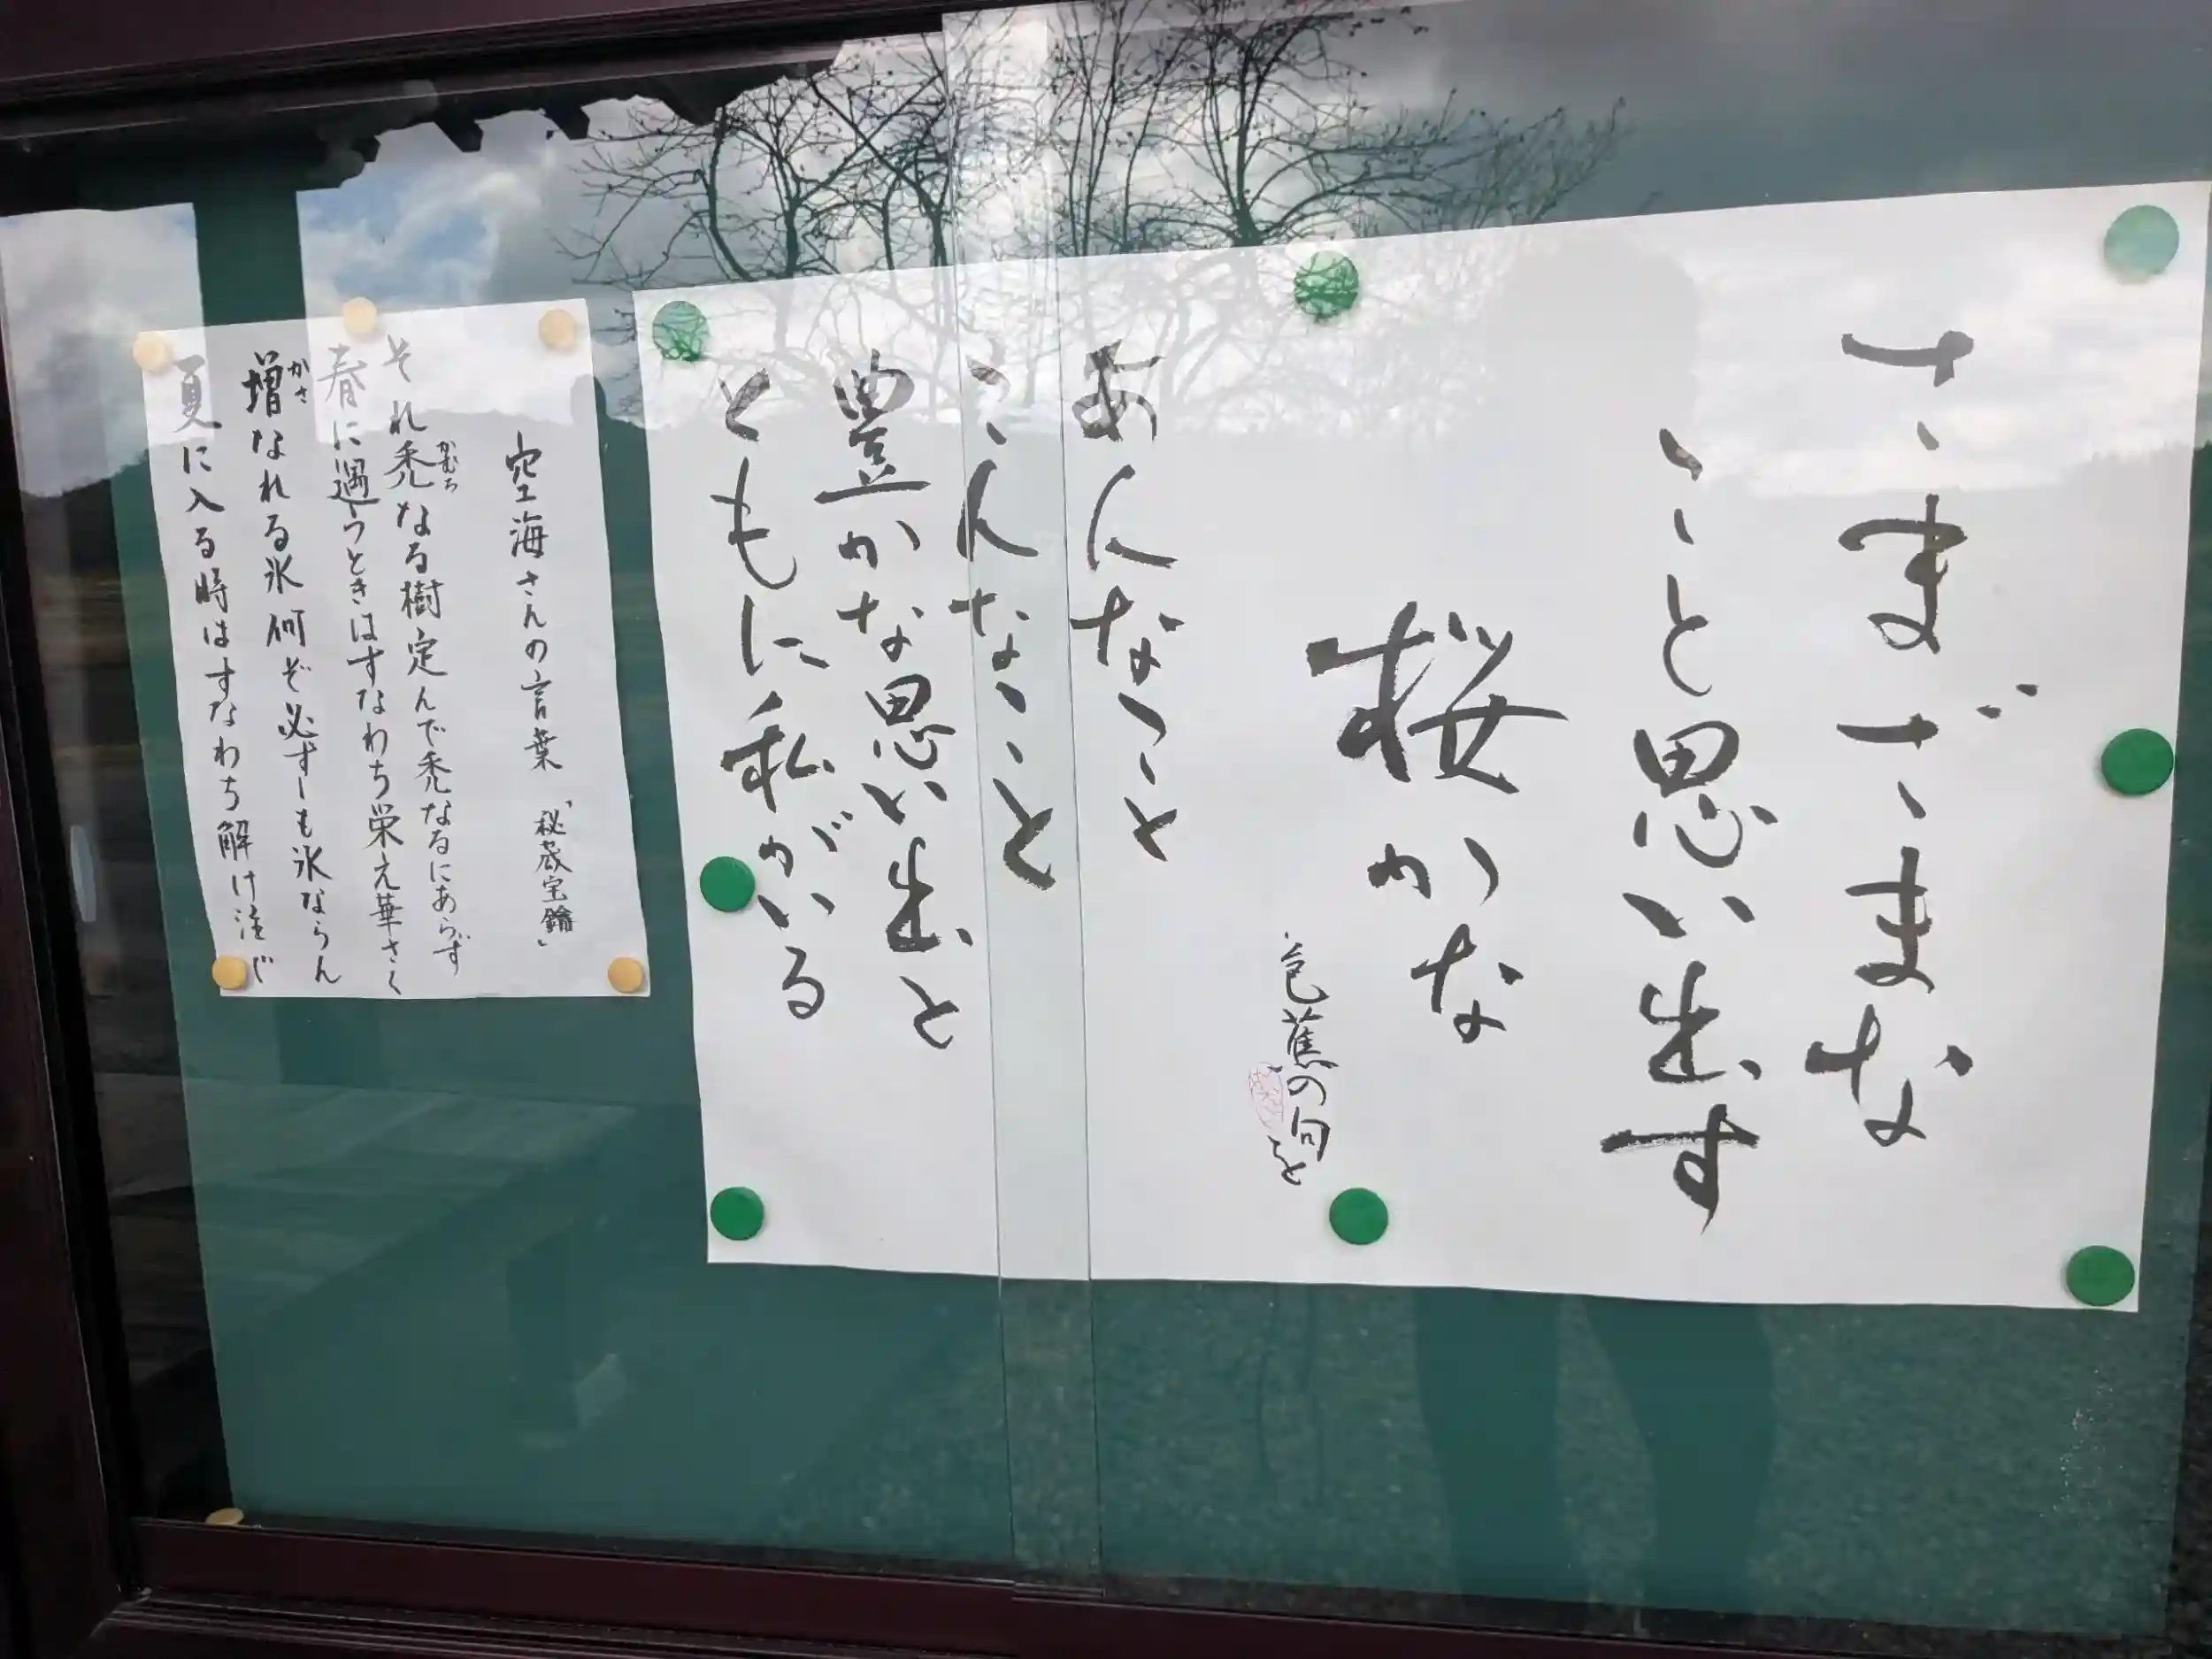 さまざまな
こと思い出す
桜かな
芭蕉の句を
あんなこと
こんなこと
豊かな思い出と
ともに私がいる
空海さんの言葉「秘蔵宝鑰」
それ禿なる樹定んで禿なるにあらず
かむろ
春に遇うときはすなわち栄え華さく
増なれる氷何ぞ必ずしも氷ならん
かさ
夏に入る時はすなわち解け注ぐ